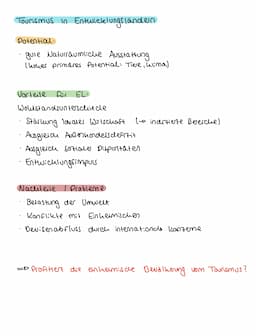 Tourismus in Entwicklungsländern
Potential
· gute Naturräumliche Ausstattung
(hohes primäres Potential: Tiere, Klima)
Vorteile für EL
Wohlstandsunterschiede
· Stärkung lokaler Wirtschaft (→ indirekte Bereiche)
· Ausgleich Außenhandelsdefizit
· Ausgleich soziale Disparitäten
· Entwicklungsimpuls
Nachteile / Probleme
· Belastung der Umwelt
· Konflikte mit Einheimischen
· Devisenabfluss durch internationale Konzerne
⇒ Profitiert die einheimische Bevölkerung vom Tourismus?